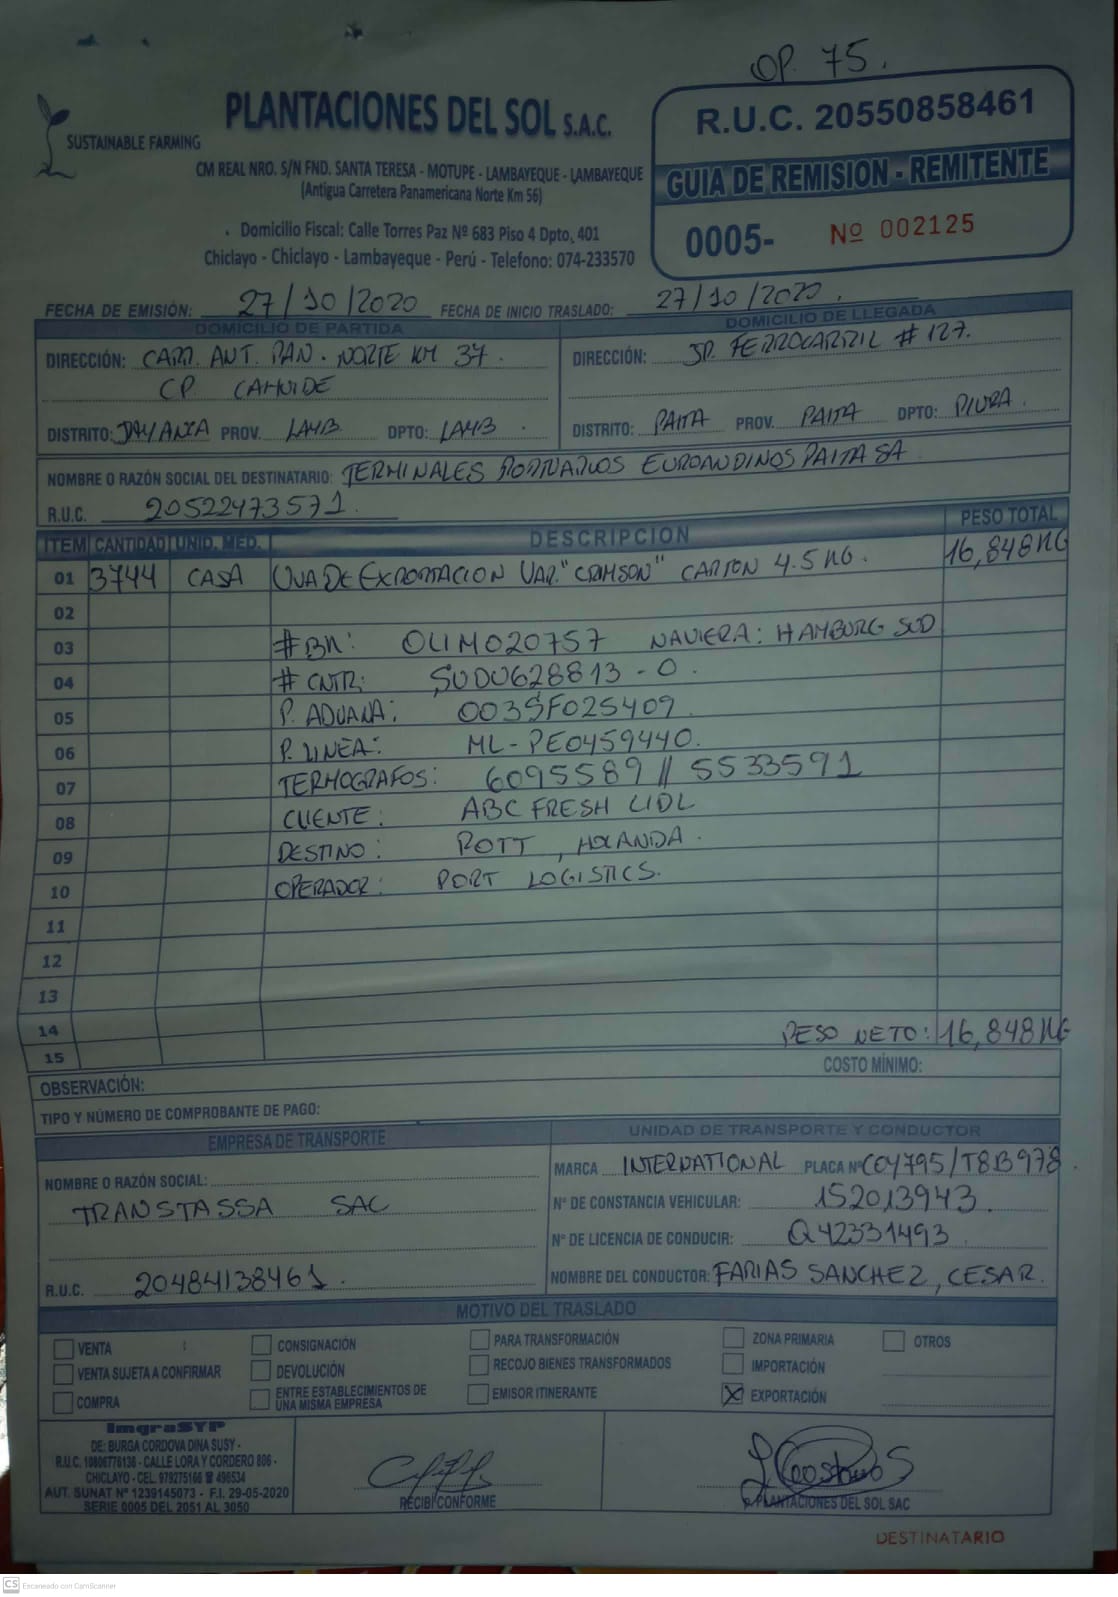 OP. 75.
PLANTACIONES DEL SOL S.A.C.
SUSTAINABLE FARMING
CM REAL NRO. S/N FND. SANTA TERESA - MOTUPE - LAMBAYEQUE - LAMBAYEQUE
(Antigua Carretera Panamericana Norte Km 56)
Domicilio Fiscal: Calle Torres Paz Nº 683 Piso 4 Dpto, 401
Chiclayo - Chiclayo - Lambayeque - Perú - Telefono: 074-233570
R.U.C. 20550858461
GUIA DE REMISION - REMITENTE
0005- Nº 002125
FECHA DE EMISIÓN: 27/10/2020 FECHA DE INICIO TRASLADO: 27/10/2020.
DOMICILIO DE PARTIDA
DIRECCIÓN: CARR. ANT. PAN. NORTE KM 37.
CP. CAHUIDE
DISTRITO: JAYANCA PROV. LAMB DPTO: LAMB.
DOMICILIO DE LLEGADA
DIRECCIÓN: JR. FERROCARRIL # 127.
DISTRITO: PAITA PROV. PAITA DPTO: PIURA.
NOMBRE O RAZÓN SOCIAL DEL DESTINATARIO: TERMINALES PORTUARIOS EUROANDINOS PAITA SA
R.U.C. 20522473571.
ITEM CANTIDAD UNID. MED. DESCRIPCION PESO TOTAL
01 3744 CASA UVA DE EXPORTACION VAR. "CRIMSON" CARTON 4.5 KG. 16,848KG
02
03 #BK: OLIM020757 NAVIERA: HAMBURG SUD
04 # CNTR: SUDU628813-0.
05 P. ADUANA: 003SF025409
06 P. LINEA: ML-PE0459440.
07 TERMOGRAFOS: 6095589 // 5533591
08 CLIENTE: ABC FRESH LIDL
09 DESTINO: ROTT, HOLANDA.
10 OPERADOR: PORT LOGISTICS.
11
12
13
14 PESO NETO: 16,848KG
15
COSTO MÍNIMO:
OBSERVACIÓN:
TIPO Y NÚMERO DE COMPROBANTE DE PAGO:
EMPRESA DE TRANSPORTE
NOMBRE O RAZÓN SOCIAL:
TRANSTASSA SAC
R.U.C. 20484138461.
UNIDAD DE TRANSPORTE Y CONDUCTOR
MARCA INTERNATIONAL PLACA Nº C0Y795/T8B978
Nº DE CONSTANCIA VEHICULAR: 152013943.
Nº DE LICENCIA DE CONDUCIR: Q42331493
NOMBRE DEL CONDUCTOR: FARIAS SANCHEZ, CESAR.
MOTIVO DEL TRASLADO
VENTA
VENTA SUJETA A CONFIRMAR
COMPRA
CONSIGNACIÓN
DEVOLUCIÓN
ENTRE ESTABLECIMIENTOS DE
UNA MISMA EMPRESA
PARA TRANSFORMACIÓN
RECOJO BIENES TRANSFORMADOS
EMISOR ITINERANTE
ZONA PRIMARIA
IMPORTACIÓN
X EXPORTACIÓN
OTROS
ImgraSYP
DE: BURGA CORDOVA DINA SUSY -
R.U.C. 10806778138 - CALLE LORA Y CORDERO 806 -
CHICLAYO - CEL. 979275166 ☎ 496534
AUT. SUNAT Nº 1239145073 - F.I. 29-05-2020
SERIE 0005 DEL 2051 AL 3050
RECIBI CONFORME
P. PLANTACIONES DEL SOL SAC
DESTINATARIO
CS Escaneado con CamScanner